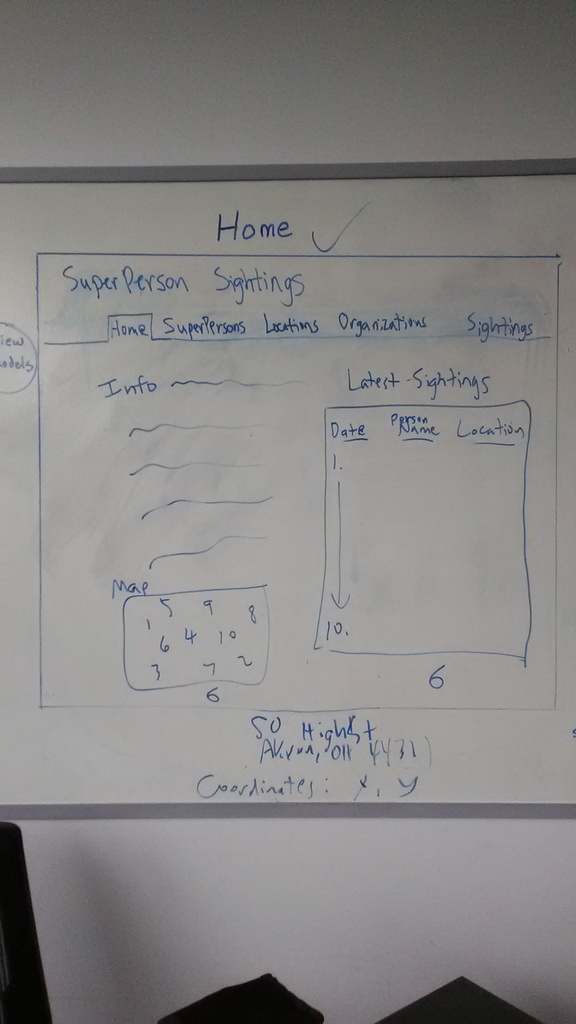 Home
SuperPerson Sightings
Home SuperPersons Locations Organizations Sightings
iew
odels
Info
Latest Sightings
Date Person Name Location
1.
10.
Map
5 9 8
1
6 4 10
3 7 2
6
6
50 High St
Akron, OH 44311
Coordinates: X, Y